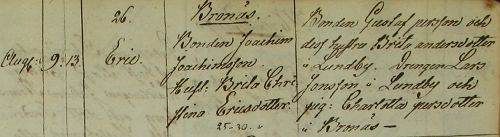 26.
Bronäs.
Aug: 9. 13. Eric.
Bonden Joachim
Joachimsson.
Hust. Brita Chri
stina Ericsdotter.
25-30.
Bonden Gustaf persson och
dess hustru Brita andersdotter
i Lundby. Drengen Lars
Jonsson i Lundby och
pig: Charlotta persdotter
i Bronäs —